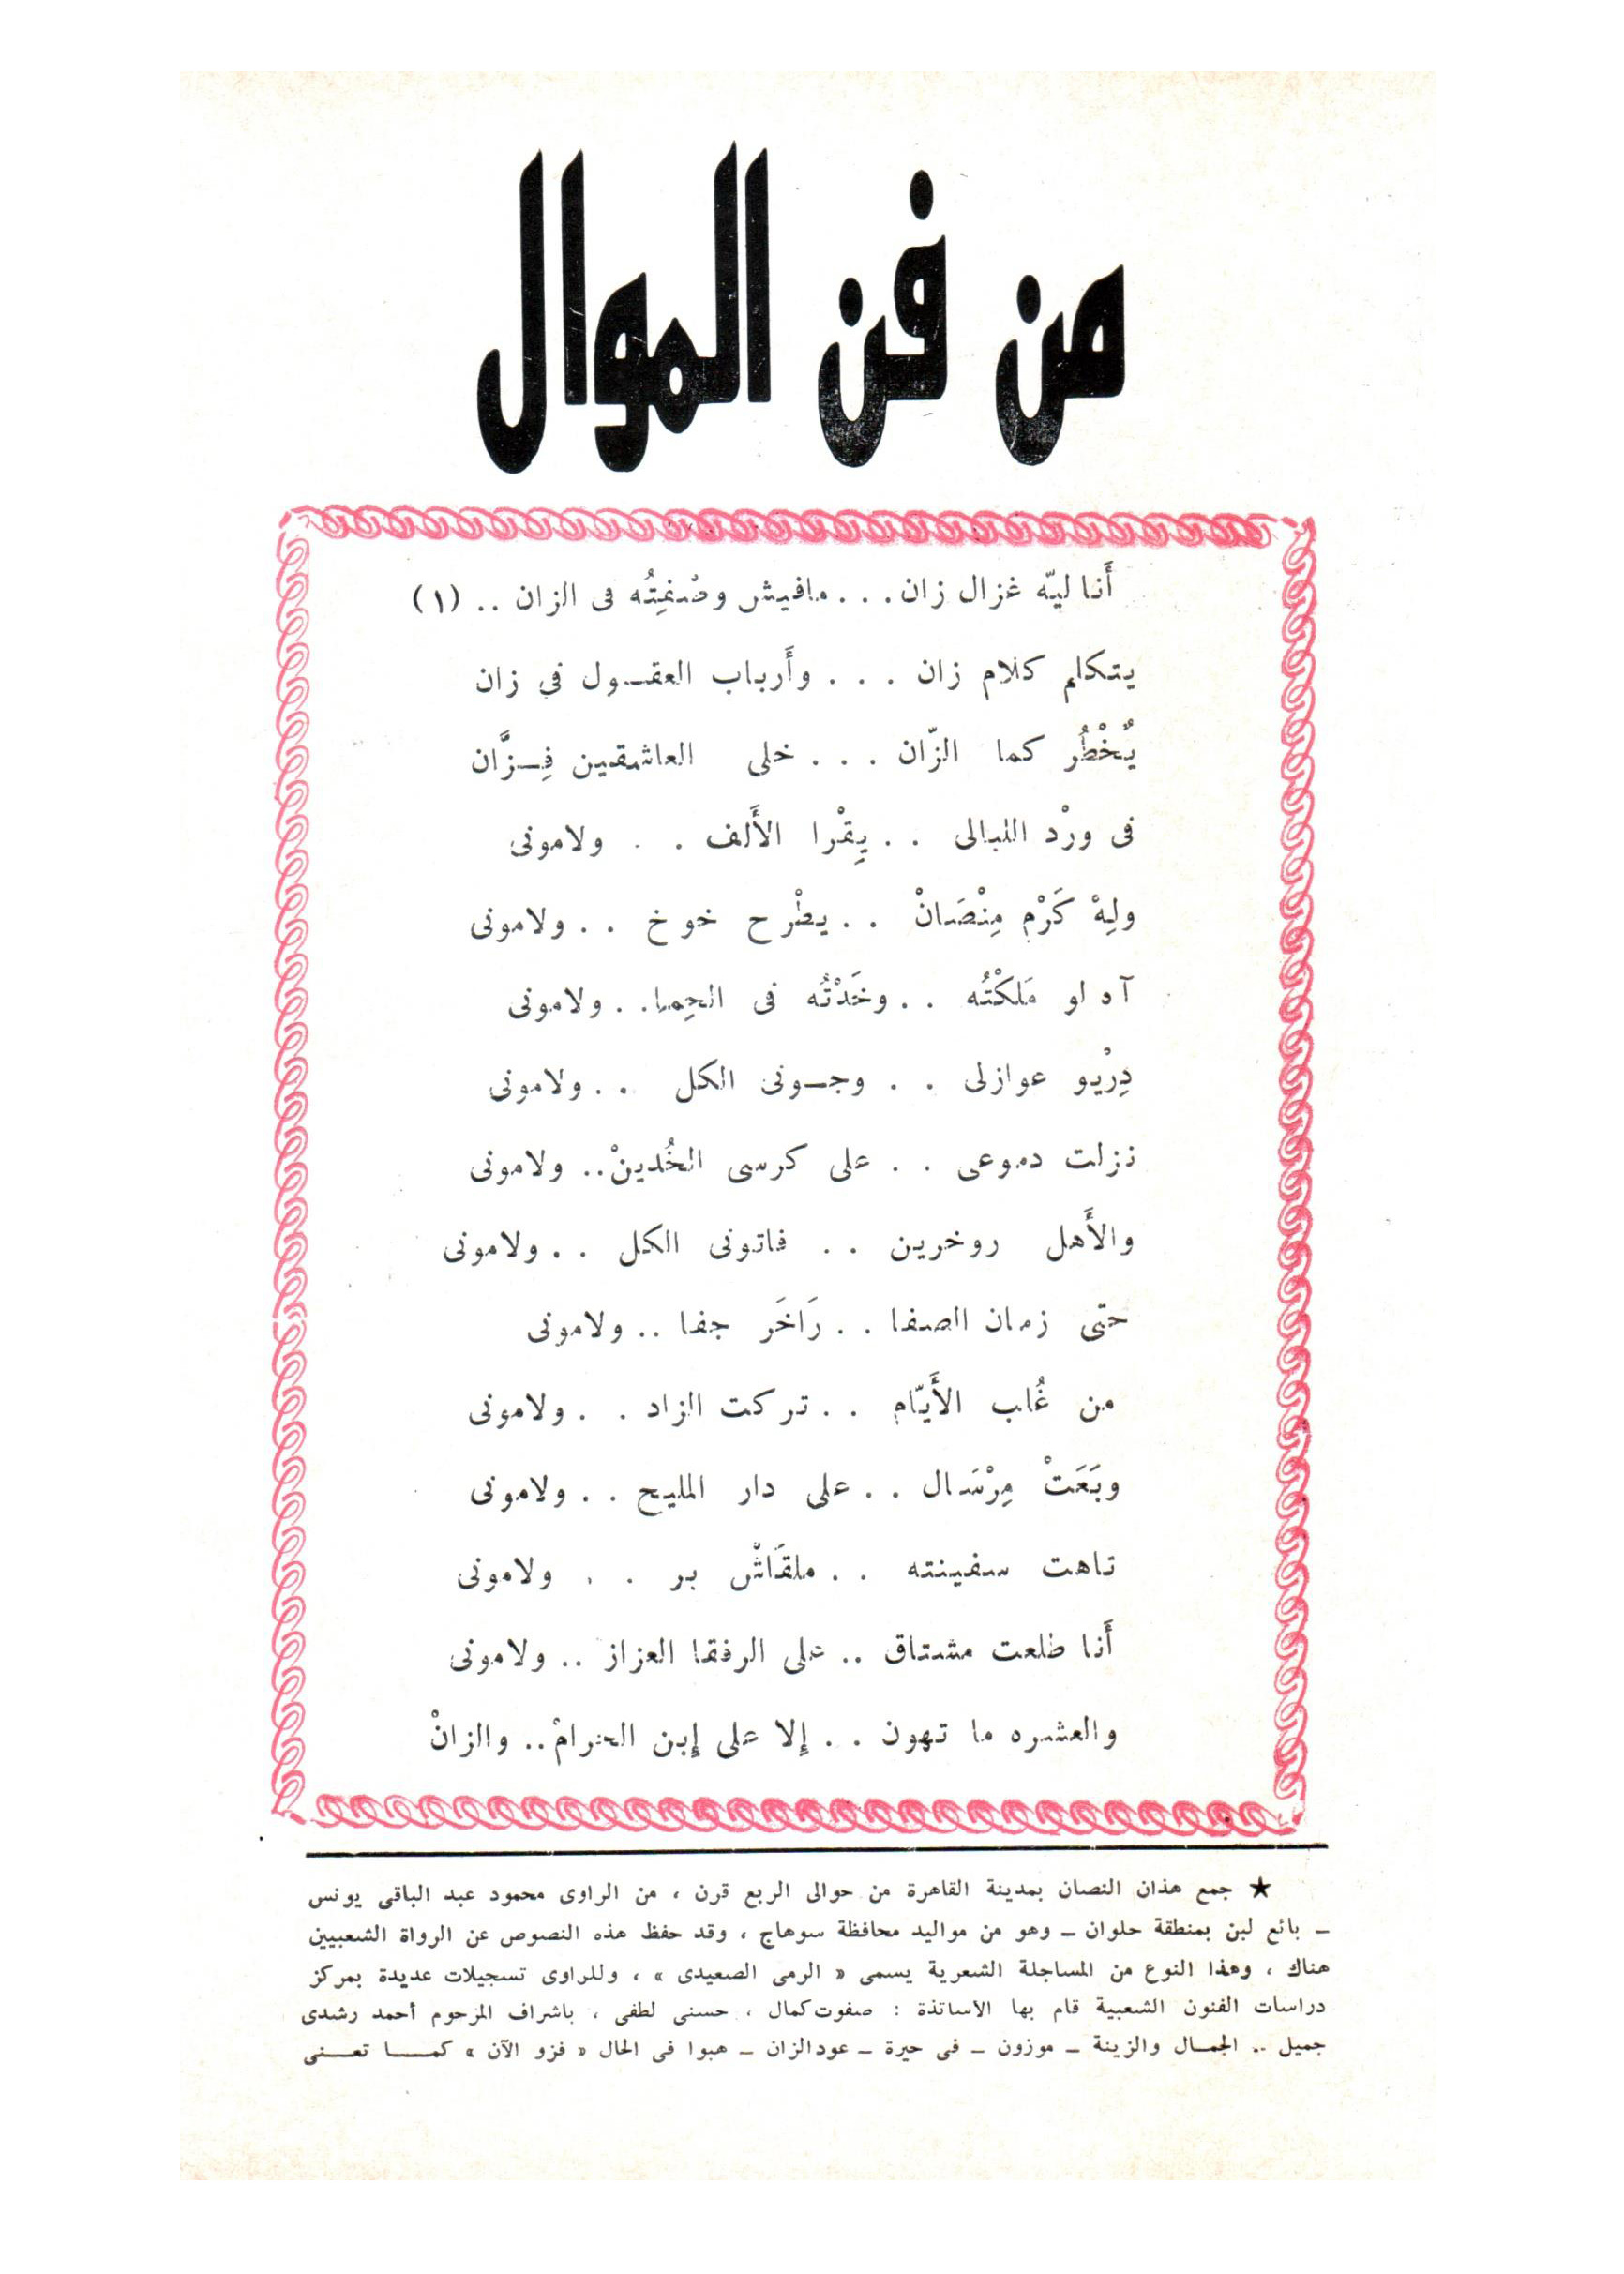 من فن الموال
أَنا ليّه غزال زان . . . مافيش وصْنمِتُه فى الزان .. (١)
يتكلم كلام زان . . . وأَرباب العقـول في زان
يُخْطُر كما الزّان . . . خلى العاشقين فِـزَّان
فى ورْد الليالى . . يِقْرا الأَلف . . ولامونى
ولِهْ كَرْم مِنْصَانْ . . يطْرح خوخ . . ولامونى
آه لو مَلكْتُه . . وخَدْتُه فى الحِما . . ولامونى
دِرْيو عوازلى . . وجـونى الكل . . ولامونى
نزلت دموعى . . على كرسى الخُدينْ .. ولامونى
والأَهل روخرين . . فاتونى الكل . . ولامونى
حتى زمان الصفا . . رَاخَر جفا .. ولامونى
من غُلب الأَيّام . . تركت الزاد . . ولامونى
وبَعَتْ مِرْسَال . . على دار المليح . . ولامونى
تاهت سفينته . . ملقَاشْ بر . . ولامونى
أَنا طلعت مشتاق .. على الرفقا العزاز .. ولامونى
والعشره ما تهون . . إلا على إبن الحرامْ .. والزانْ
★ جمع هذان النصان بمدينة القاهرة من حوالى الربع قرن ، من الراوى محمود عبد الباقى يونس
ـ بائع لبن بمنطقة حلوان ـ وهو من مواليد محافظة سوهاج ، وقد حفظ هذه النصوص عن الرواة الشعبيين
هناك ، وهذا النوع من المساجلة الشعرية يسمى « الرمى الصعيدى » ، وللراوى تسجيلات عديدة بمركز
دراسات الفنون الشعبية قام بها الأساتذة : صفوت كمال ، حسنى لطفى ، باشراف المرحوم أحمد رشدى
جميل .. الجمـال والزينة ـ موزون ـ فى حيرة ـ عود الزان ـ هبوا فى الحال « فزو الآن » كمـــا تعــنى